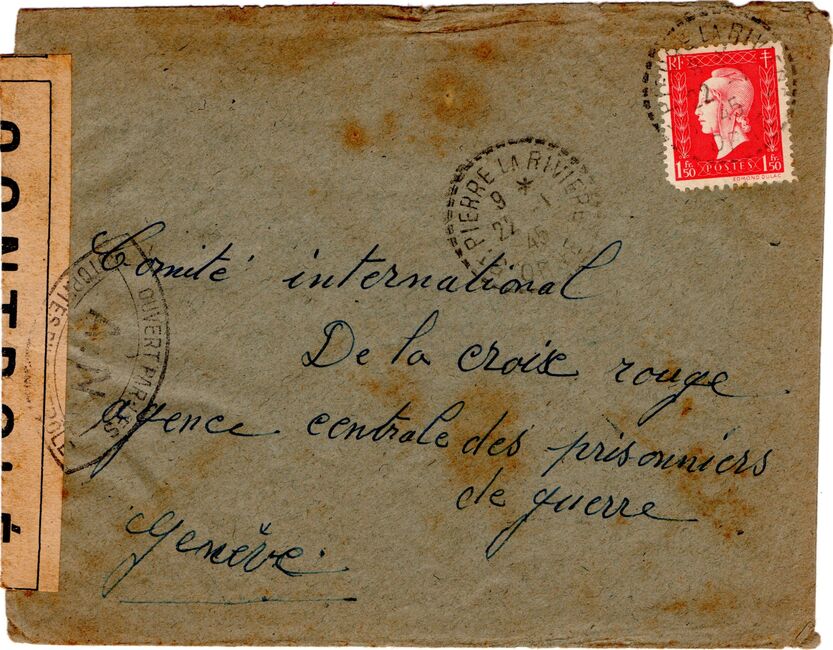 RF
1 Fr. 50 POSTES 1 Fr. 50
EDMOND DULAC
PIERRE LA RIVIERE
9 *
22 - 1
45
Comité international
De la croix rouge
Agence centrale des prisonniers
de guerre
Genève.
CONTROLÉ
OUVERT PAR LES